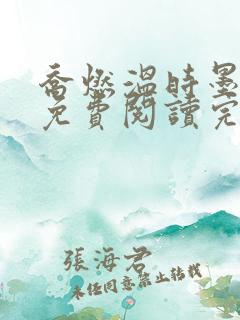 喬燃溫時墨
免費閱讀完
張海君
未經同意禁止轉載